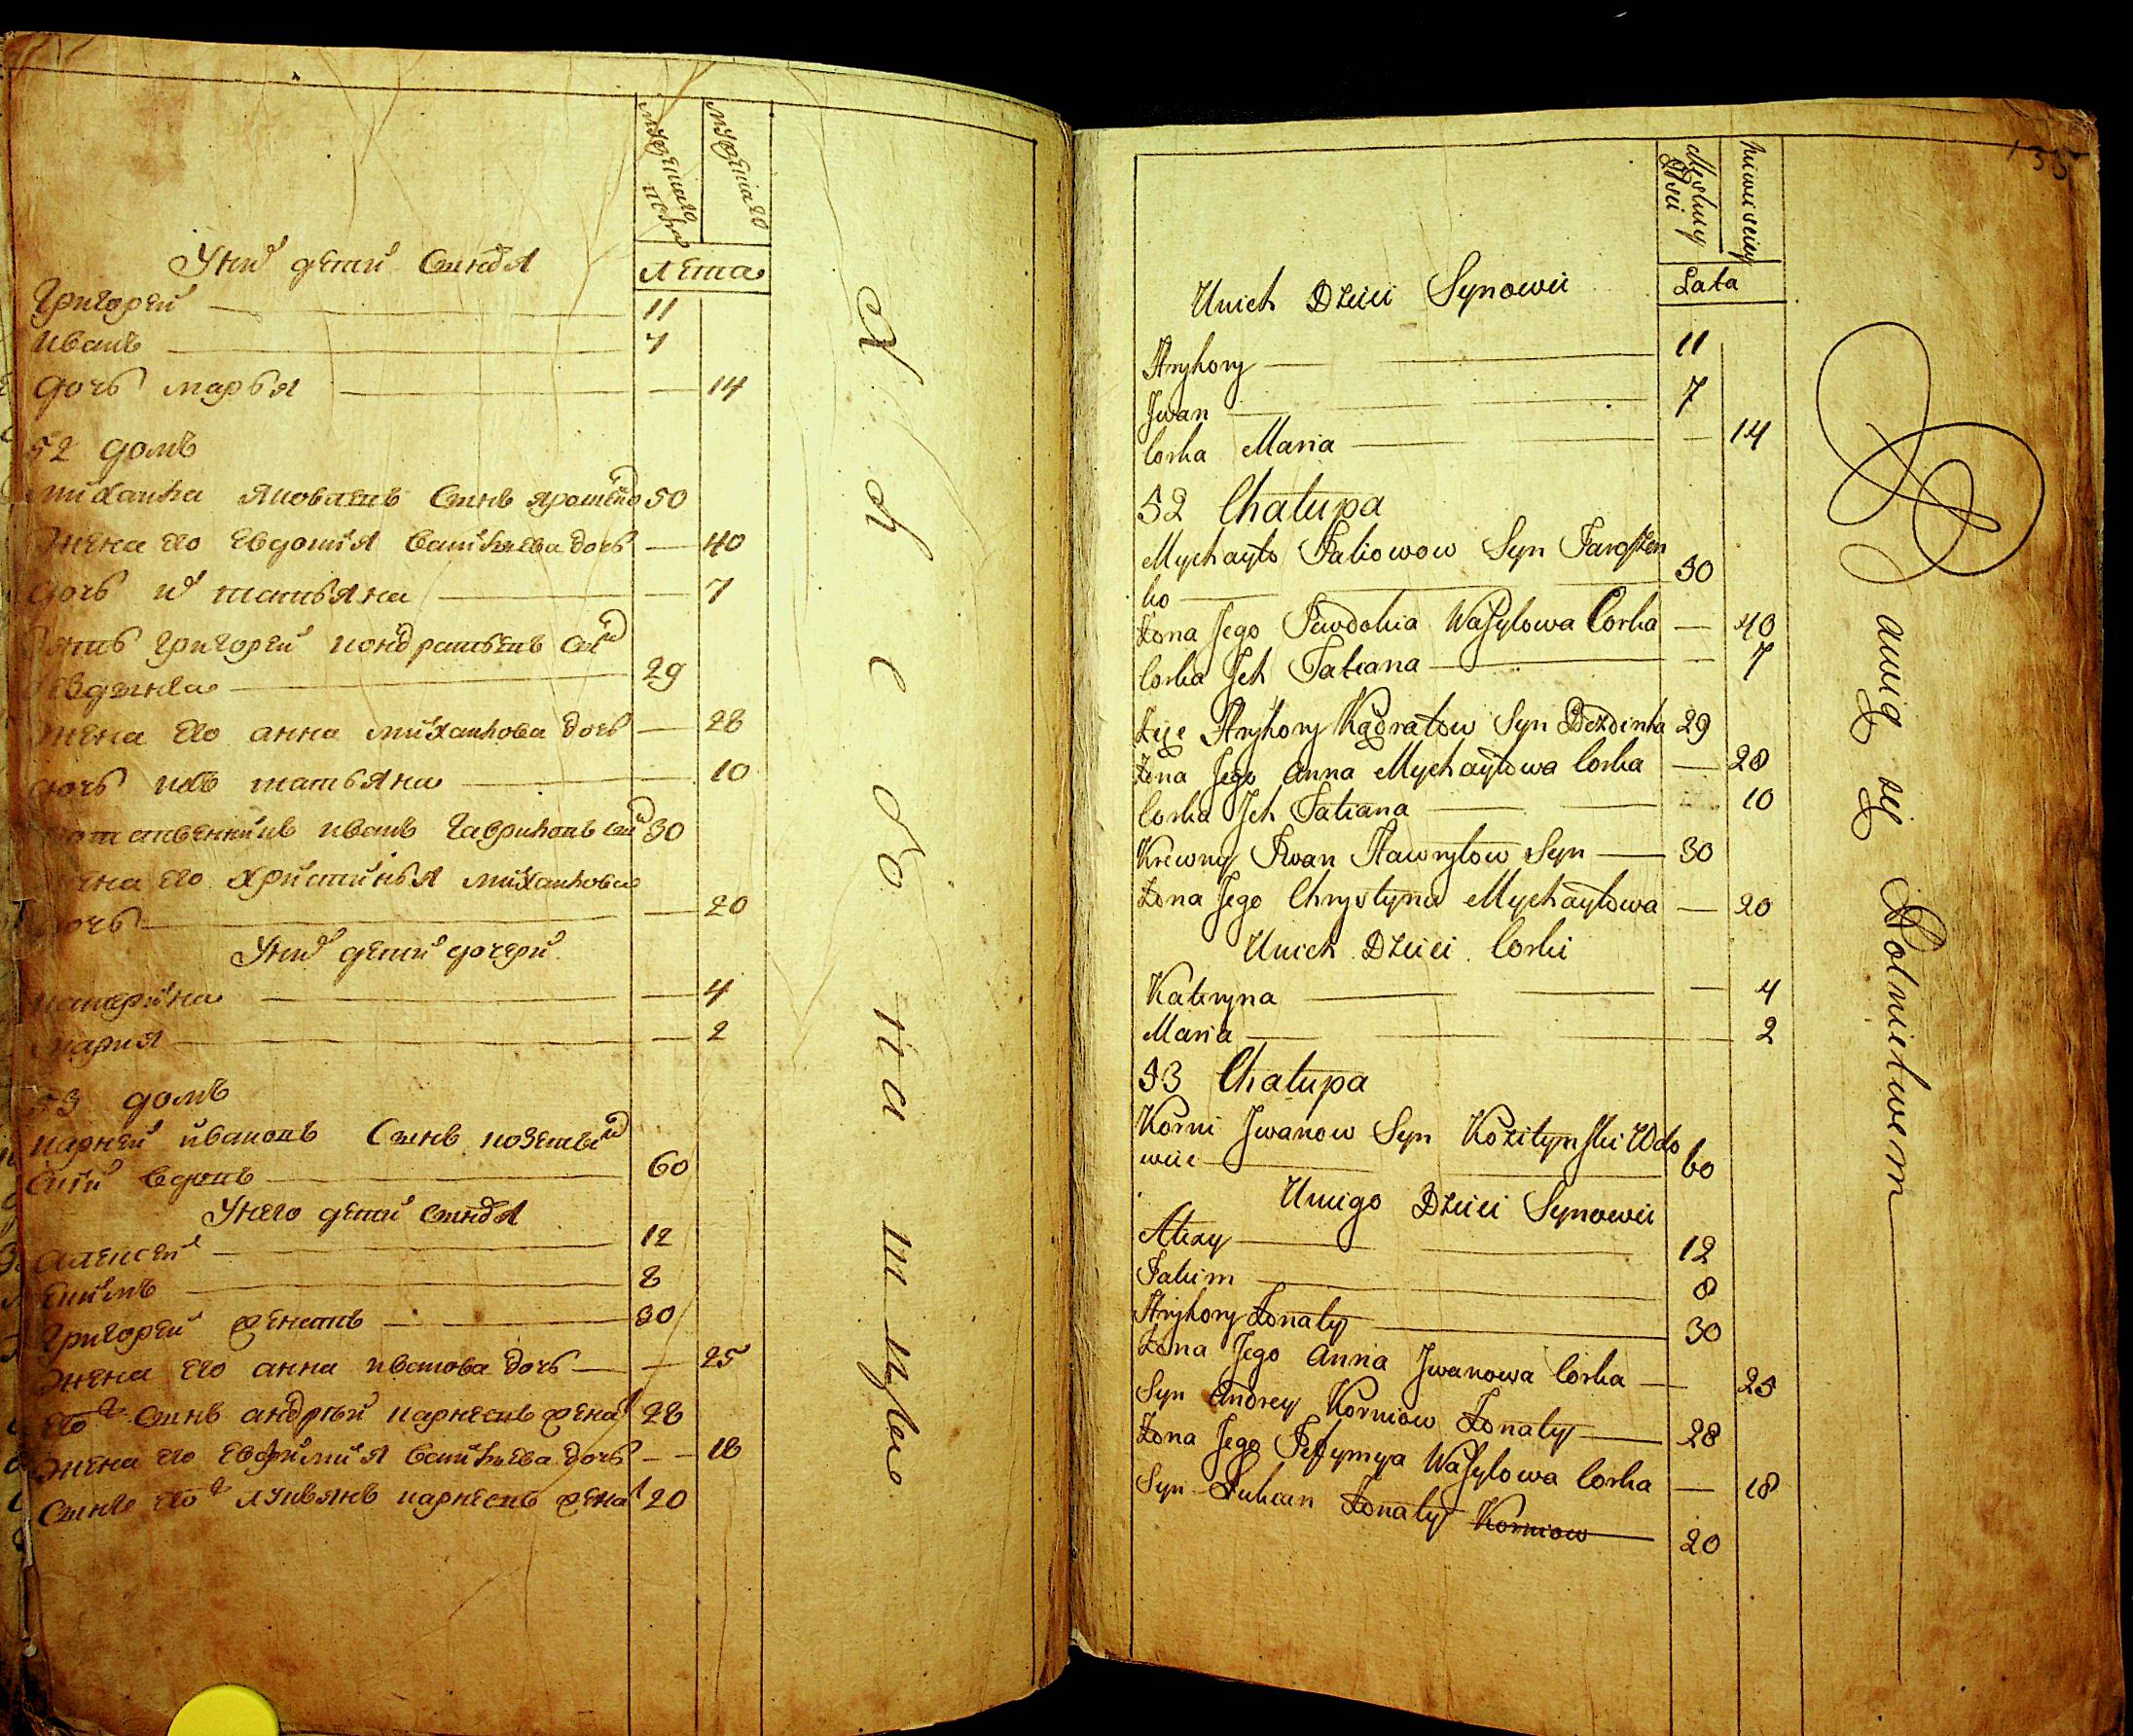 мужеска пола
женска
лета
У них детей сыновья
Григорей 11
иванъ 7
дочь марья 14
52 домъ
михайла яковлевъ сынъ ярошенко 50
жена его евдокия васильева дочь 40
дочь их татьяна 7
зять григорей кондратьевъ сынъ
29
жена его анна михайлова дочь 28
дочь ихъ татьяна 10
иванъ гавриловъ сынъ 30
жена его христинья михайлова
дочь 20
У них детей дочери
катерина 4
мария 2
53 домъ
карней ивановъ сынъ козетын
ский вдовъ 60
У него детей сыновья
алексей 12
екимъ 8
григорей женатъ 30
жена его анна иванова дочь 25
его сынъ андрей карнеевъ женат 28
жена его евфимия васильева дочь 18
сынъ его лукьянъ карнеевъ женат 20
135
Męskiey Płci
niewiesciey
Lata
Unich Dzieci Synowie
Hryhory 11
Jwan 7
Corka Maria 14
52 Chałupa
Mychayło Jakowow Syn Jaroszen
ko 50
Zona Jego Jewdokia Wasylowa Corka 40
Corka Jch Tatiana 7
Zięć Hryhory Kądratow Syn Bezdinka 29
Zona Jego Anna Mychayłowa Corka 28
Corka Jch Tatiana 10
Krewny Jwan Hawryłow Syn 30
Zona Jego Chrystyna Mychayłowa 20
Unich Dzieci Corki
Kateryna 4
Maria 2
53 Chałupa
Korni Jwanow Syn Kozitynski Wdo
wiec 60
Uniego Dzieci Synowie
Alexy 12
Jakim 8
Hryhory Zonaty 30
Zona Jego Anna Jwanowa Corka 25
Syn Andrey Korniow Zonaty 28
Zona Jego Jefymya Wasylowa Corka 18
Syn Łukian Zonaty Korniow 20